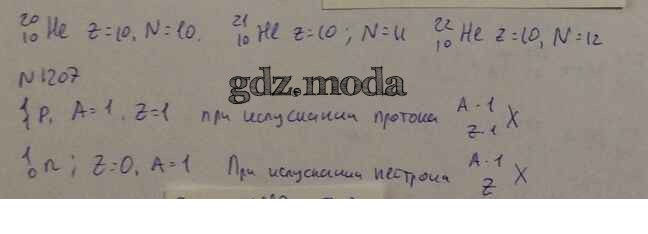 ²⁰₁₀Ne Z=10, N=10. ²¹₁₀Ne Z=10; N=11 ²²₁₀Ne Z=10, N=12
N1207
gdz.moda
¹₁P, A=1, Z=1 при испускании протона ᴬ⁻¹ Z-1 X
¹₀n; Z=0, A=1 При испускании нейтрона ᴬ⁻¹ Z X